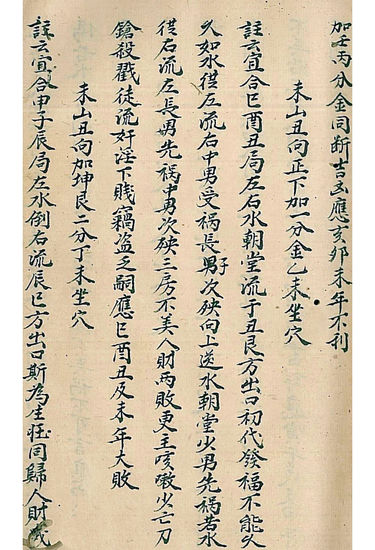 加壬丙分金同断吉凶應亥卯未年不利
未山丑向正下加一分金乙未坐穴
註云宜合巳酉丑局左右水朝堂流于丑艮方出口初代發福不能久
久如水從左流右中男受禍長男子次殃向上送水朝堂少男先禍若水
從右流左長男先禍中男次殃三房不美人財两敗更主咳嗽少亡刀
鎗殺戳徒流奸淫下賤竊盗乏嗣應巳酉丑及未年大敗
未山丑向加坤艮二分丁未坐穴
註云宜合申子辰局左水倒右流辰巳方出口斯為生旺同歸人財